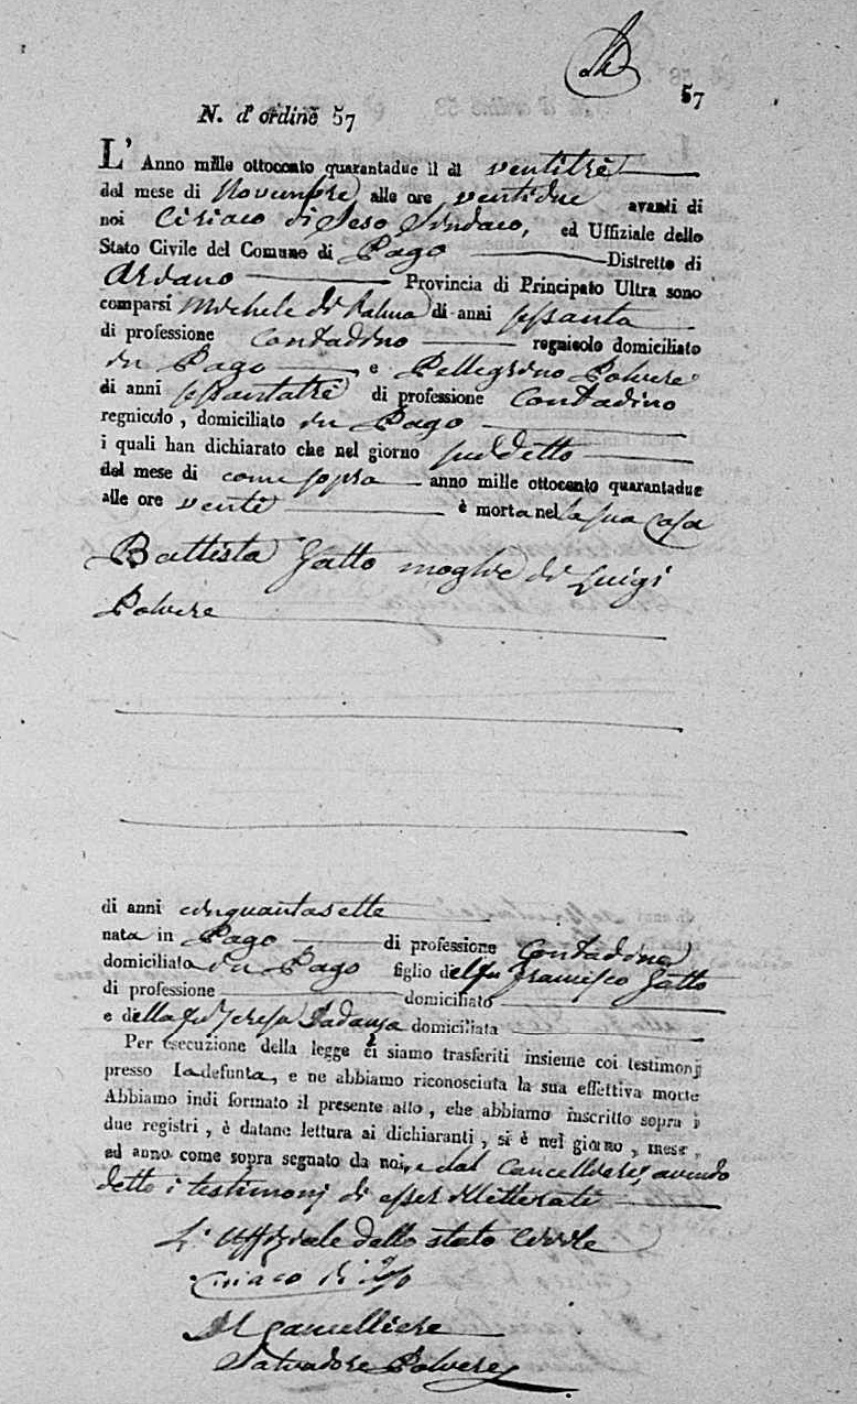 57
N. d'ordine 57
L' Anno mille ottocento quarantadue il di ventitrè
del mese di Novembre alle ore ventidue avanti di
noi Ciriaco di Ieso Sindaco, ed Uffiziale dello
Stato Civile del Comune di Pago Distretto di
Ariano Provincia di Principato Ultra sono
comparsi Michele di Palma di anni sessanta
di professione Contadino regnicolo domiciliato
in Pago e Pellegrino Polvere
di anni sessantatre di professione Contadino
regnicolo, domiciliato in Pago
i quali han dichiarato che nel giorno suddetto
del mese di come sopra anno mille ottocento quarantadue
alle ore venti è morta nella sua casa
Battista Gatto moglie di Luigi
Polvere
di anni cinquantasette
nata in Pago di professione Contadina
domiciliata in Pago figlio del fu Francesco Gatto
di professione domiciliato
e della fu Teresa Iadanza domiciliata
Per esecuzione della legge ci siamo trasferiti insieme coi testimonj
presso la defunta, e ne abbiamo riconosciuta la sua effettiva morte
Abbiamo indi formato il presente atto, che abbiamo inscritto sopra i
due registri, è datane lettura ai dichiaranti, si è nel giorno, mese,
ed anno come sopra segnato da noi, e dal Cancelliere, avendo
detto i testimonj di esser illetterati
L'Uffiziale dello stato Civile
Ciriaco di Ieso
Il Cancelliere
Salvadore Polvere